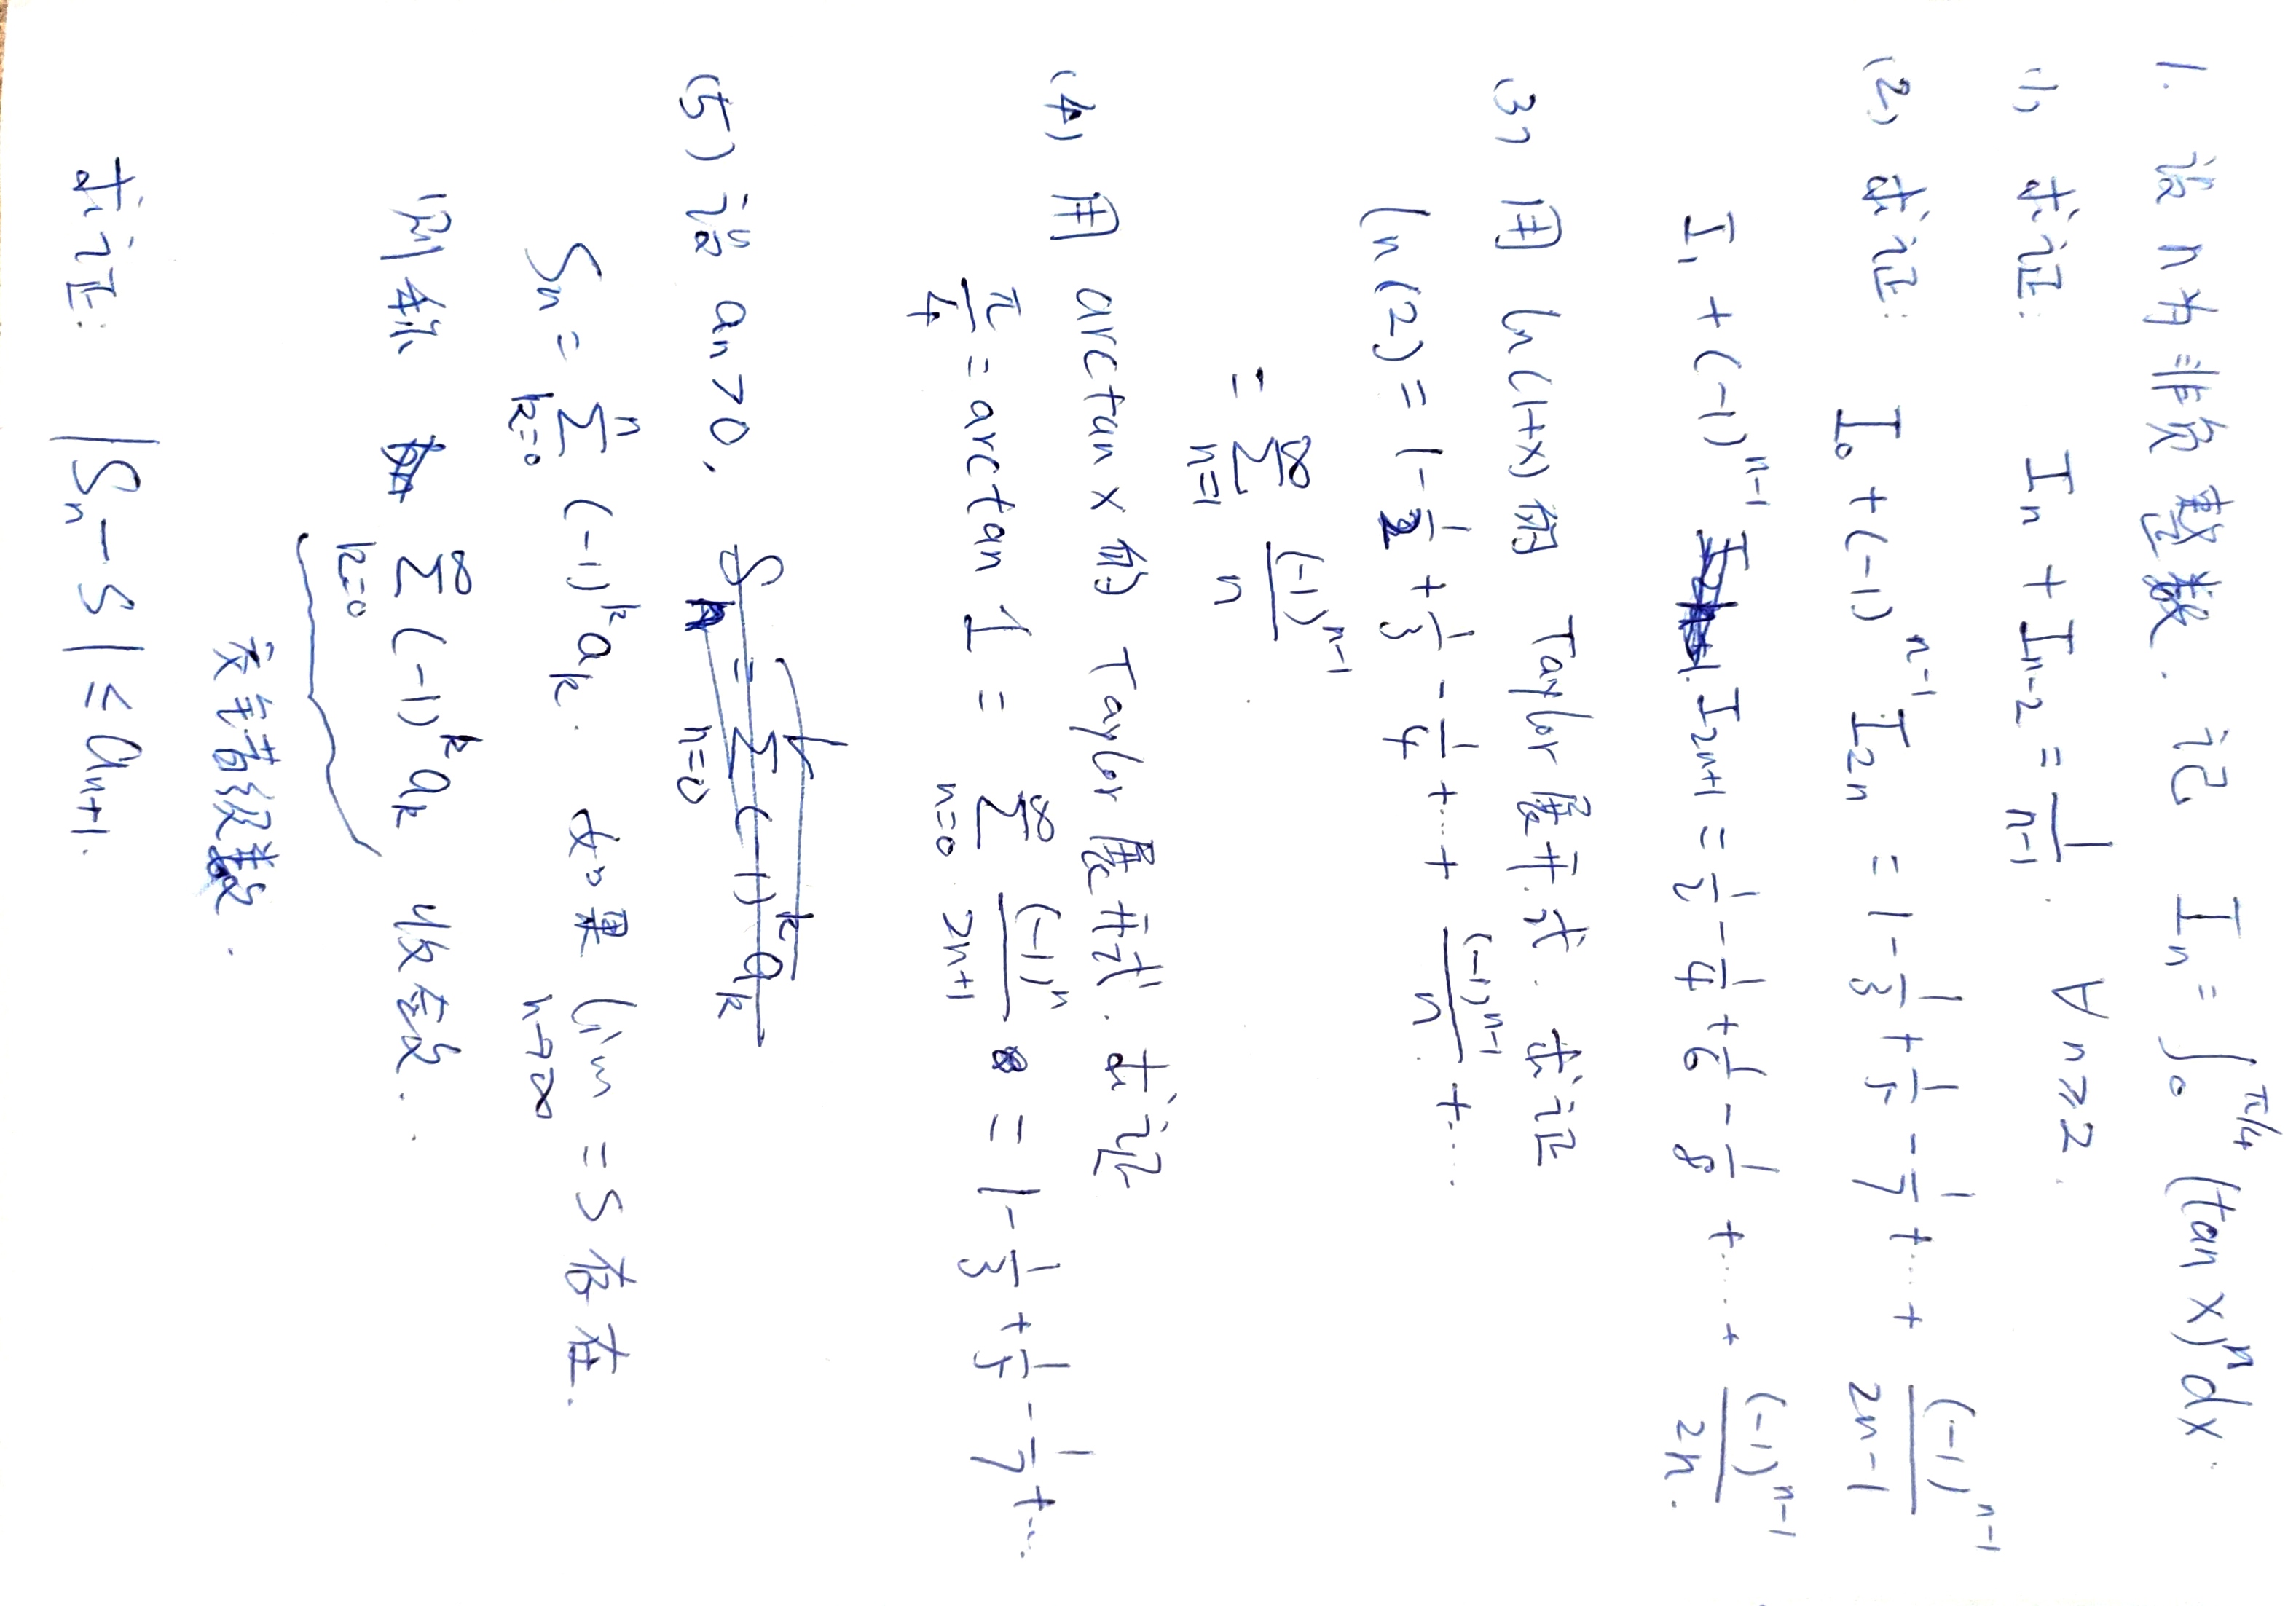 1. 设 n 为非负整数. 记 Iₙ = ∫₀^{π/4} (tan x)ⁿ dx.
(1) 求证: Iₙ + Iₙ₋₂ = 1/(n-1). ∀ n ≥ 2.
(2) 求证: I₀ + (-1)^{n-1} I₂ₙ = 1 - 1/3 + 1/5 - 1/7 + ⋯ + (-1)^{n-1}/(2n-1)
I₁ + (-1)^{n-1} I₂ₙ₊₁ = 1/2 - 1/4 + 1/6 - 1/8 + ⋯ + (-1)^{n-1}/(2n).
(3) 用 ln(1+x) 的 Taylor 展开式. 求证
ln(2) = 1 - 1/2 + 1/3 - 1/4 + ⋯ + (-1)^{n-1}/n + ⋯
= ∑_{n=1}^{∞} (-1)^{n-1}/n
(4) 用 arctan x 的 Taylor 展开式. 求证
π/4 = arctan 1 = ∑_{n=0}^{∞} (-1)ⁿ/(2n+1) = 1 - 1/3 + 1/5 - 1/7 + ⋯
(5) 设 aₙ > 0,
Sₙ = ∑_{k=0}^{n} (-1)^k a_k. 如果 lim_{n→∞} = S 存在.
则称 ∑_{k=0}^{∞} (-1)^k a_k 收敛.
交错级数.
求证: |Sₙ - S| ≤ aₙ₊₁.